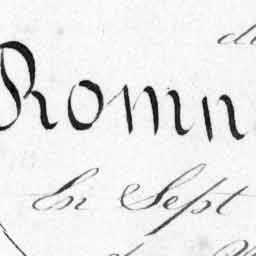 du
Romn
En Sept